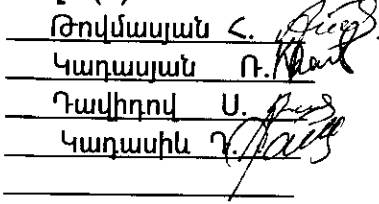 Թովմասյան Հ.
Կաղասյան Ռ.
Դավիդով Ս.
Կաղասիև Դ.